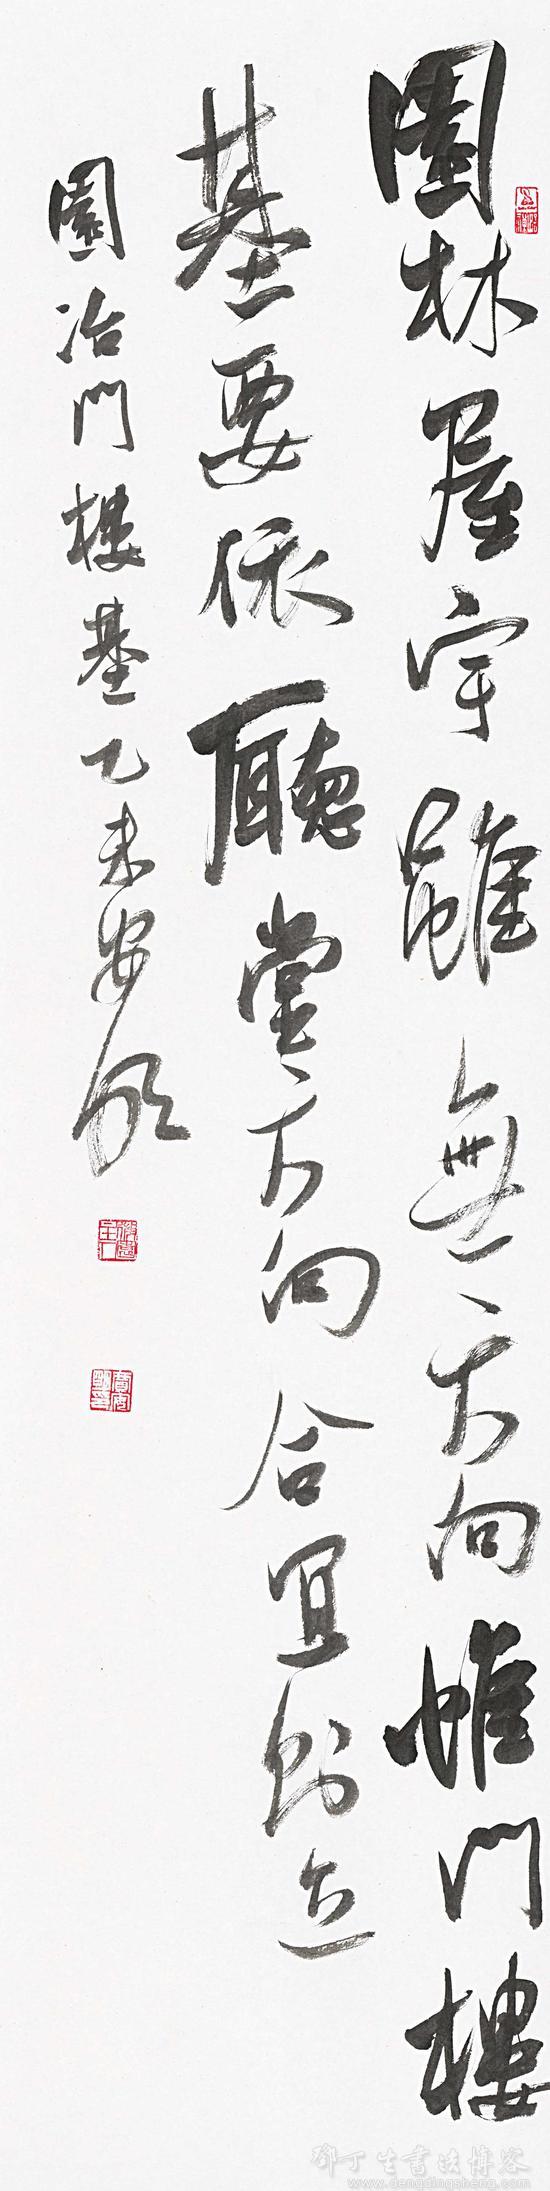 園林屋宇雖無方向惟門樓
基要依廳堂方向合宜則立
園冶門樓基乙未安明
鄧丁生書法博客
www.dengdingsheng.com